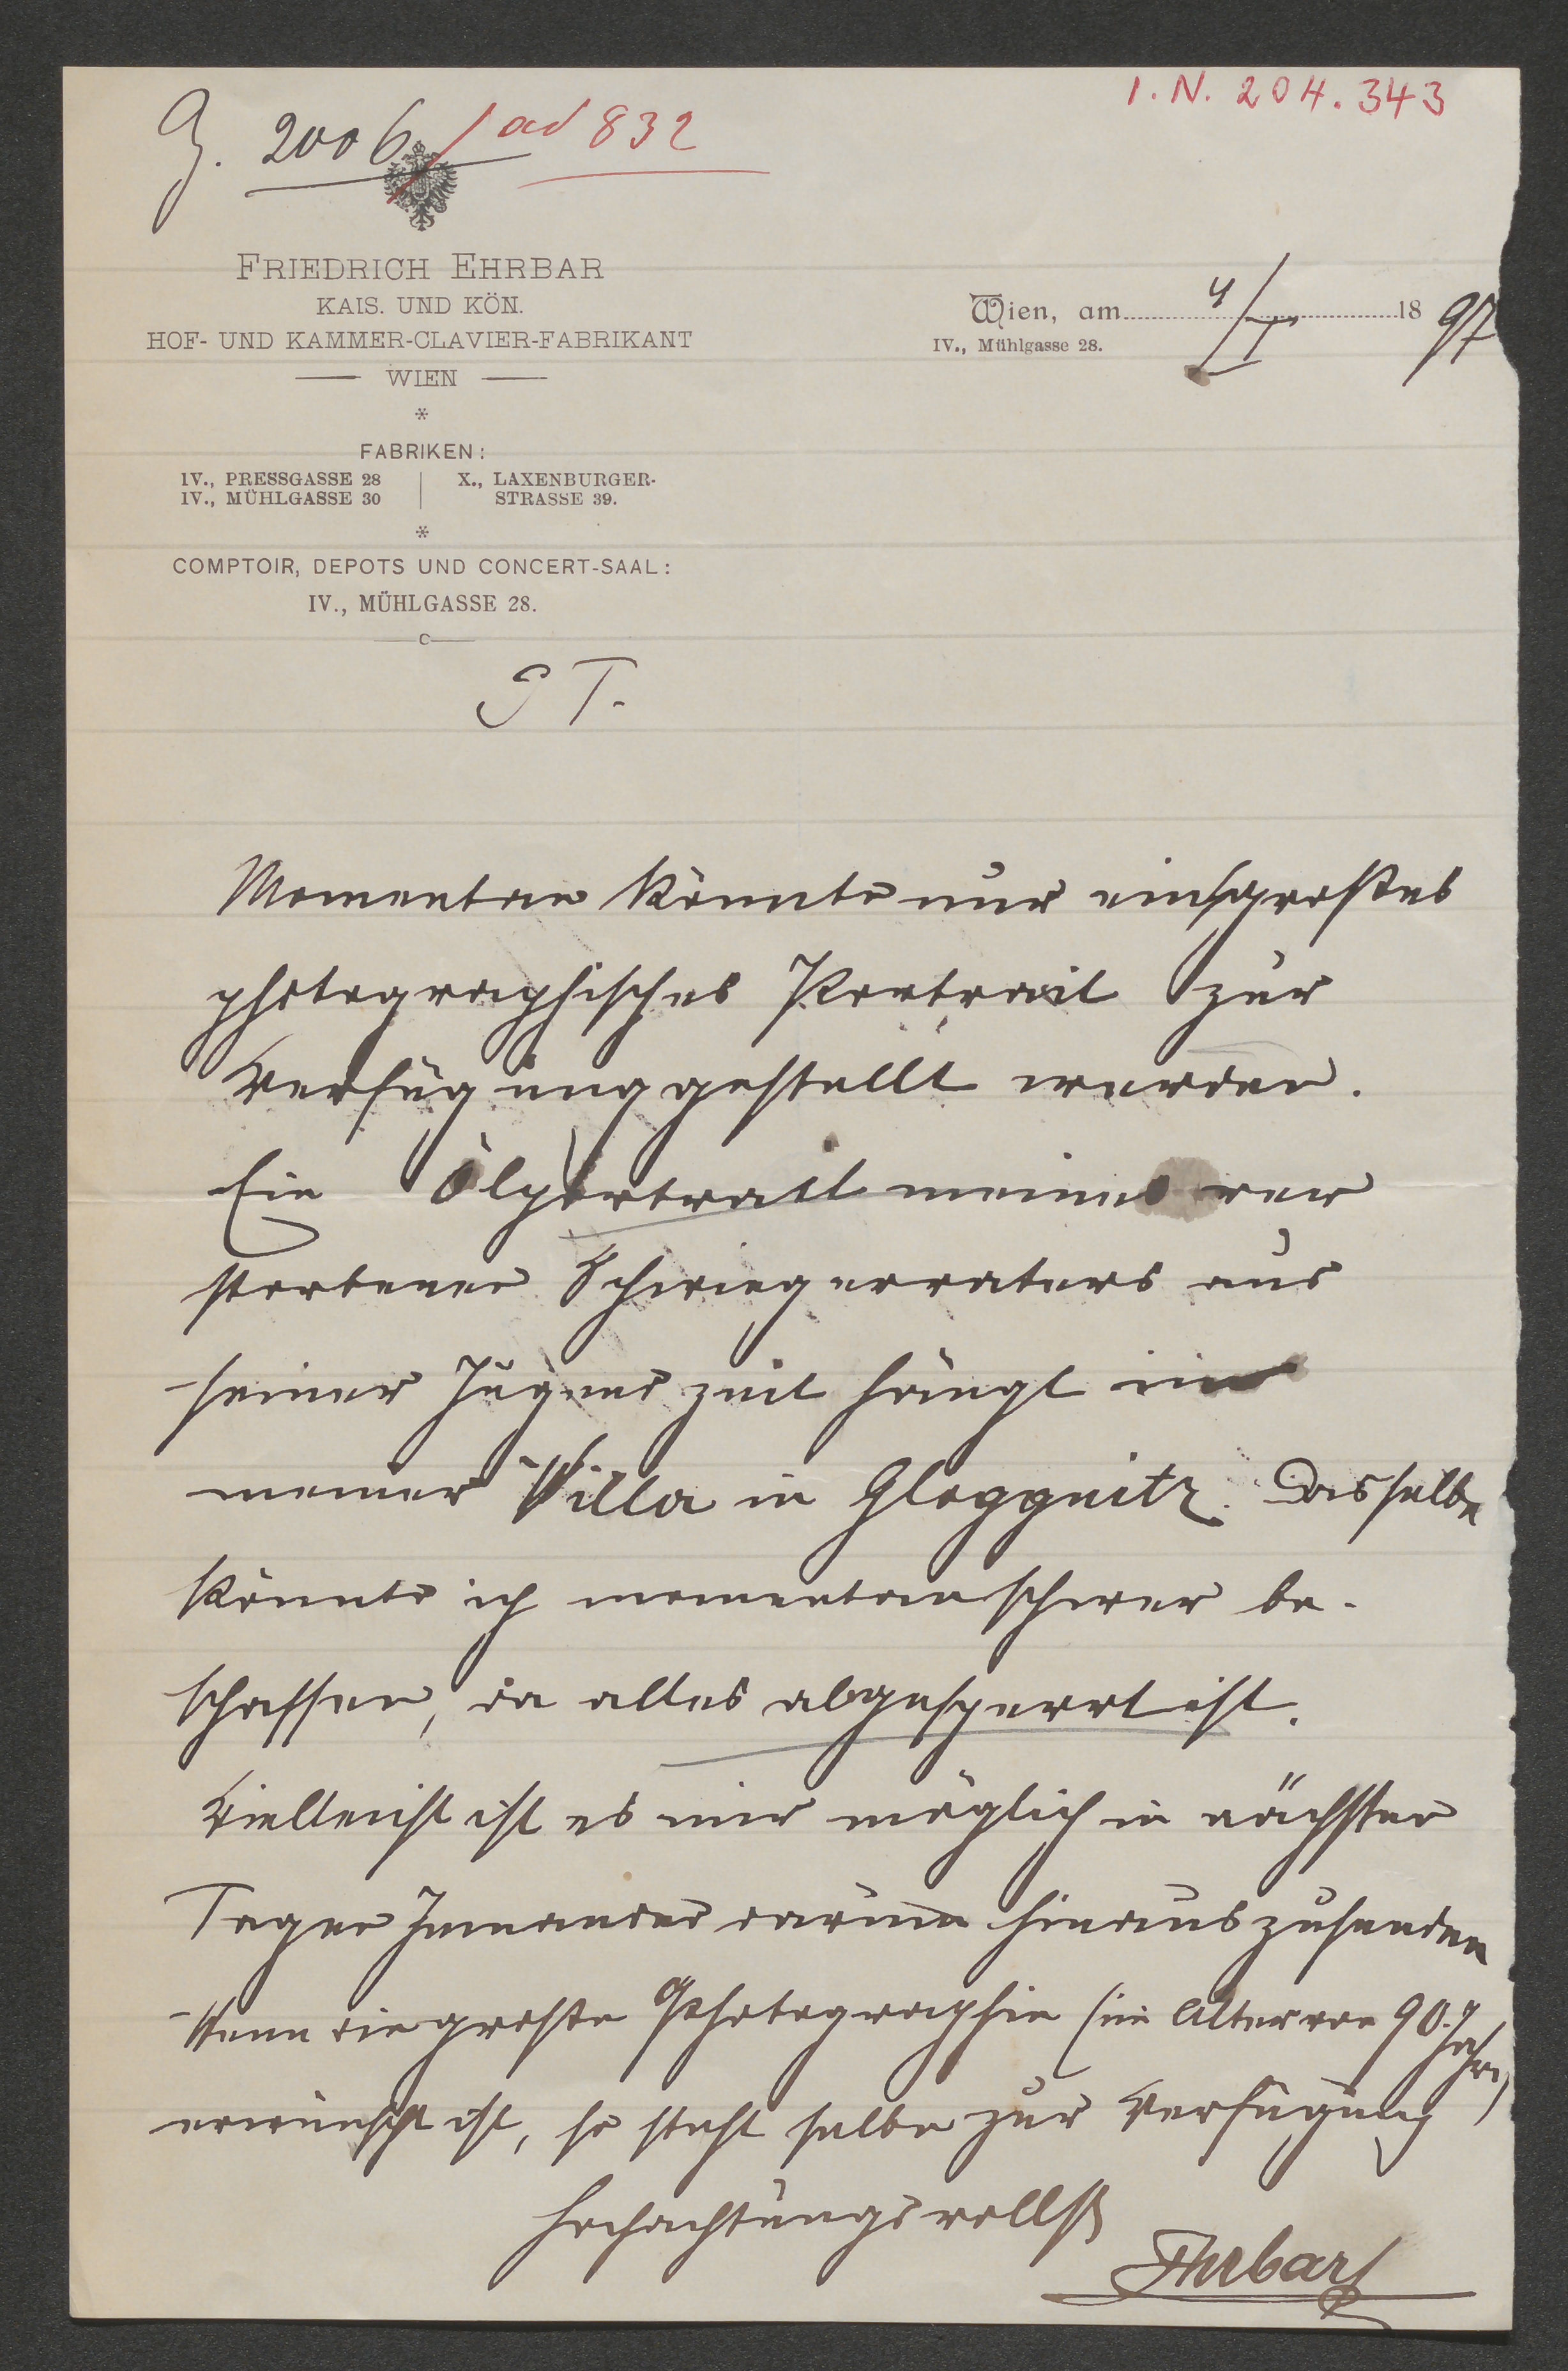 I. N. 204.343
Z. 2006 / ad 832
FRIEDRICH EHRBAR
KAIS. UND KÖN.
HOF- UND KAMMER-CLAVIER-FABRIKANT
WIEN
Wien, am 4/I 1897
IV., Mühlgasse 28.
*
FABRIKEN:
IV., PRESSGASSE 28 | X., LAXENBURGER-
IV., MÜHLGASSE 30 | STRASSE 39.
*
COMPTOIR, DEPOTS UND CONCERT-SAAL:
IV., MÜHLGASSE 28.
P T.
Momentan könnte nur ein großes
photographisches Portrait zur
Verfügung gestellt werden.
Ein Ölportrait meines ver
storbenen Schwiegervaters aus
seiner Jugendzeit hängt in
meiner Villa in Gloggnitz. Dasselbe
könnte ich momentan schwer be-
schaffen, da alles abgesperrt ist.
Vielleicht ist es mir möglich in nächster
Tagen Jemanden darum hinauszusenden
Wenn die große Photographie (im Alter von 90. Jahren)
erwünscht ist, so steht selbe zur Verfügung
Hochachtungsvollst
Ehrbar